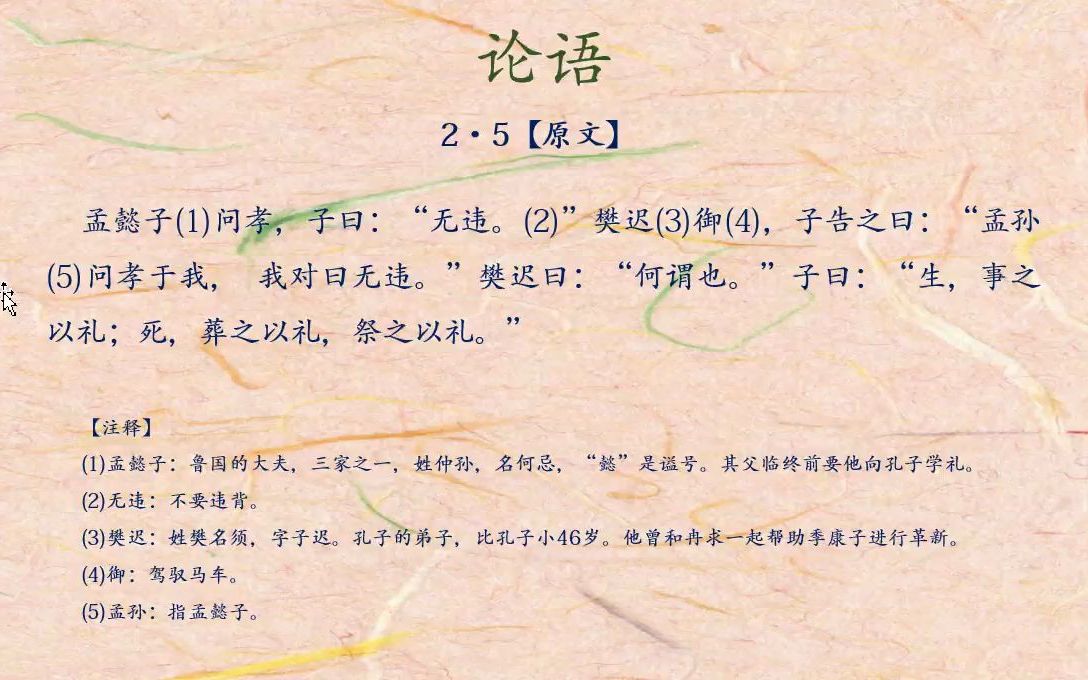 论语
2·5【原文】
孟懿子(1)问孝，子曰：“无违。(2)”樊迟(3)御(4)，子告之曰：“孟孙
(5)问孝于我， 我对曰无违。”樊迟曰：“何谓也。”子曰：“生，事之
以礼；死，葬之以礼，祭之以礼。”
【注释】
(1)孟懿子：鲁国的大夫，三家之一，姓仲孙，名何忌，“懿”是谥号。其父临终前要他向孔子学礼。
(2)无违：不要违背。
(3)樊迟：姓樊名须，字子迟。孔子的弟子，比孔子小46岁。他曾和冉求一起帮助季康子进行革新。
(4)御：驾驭马车。
(5)孟孙：指孟懿子。